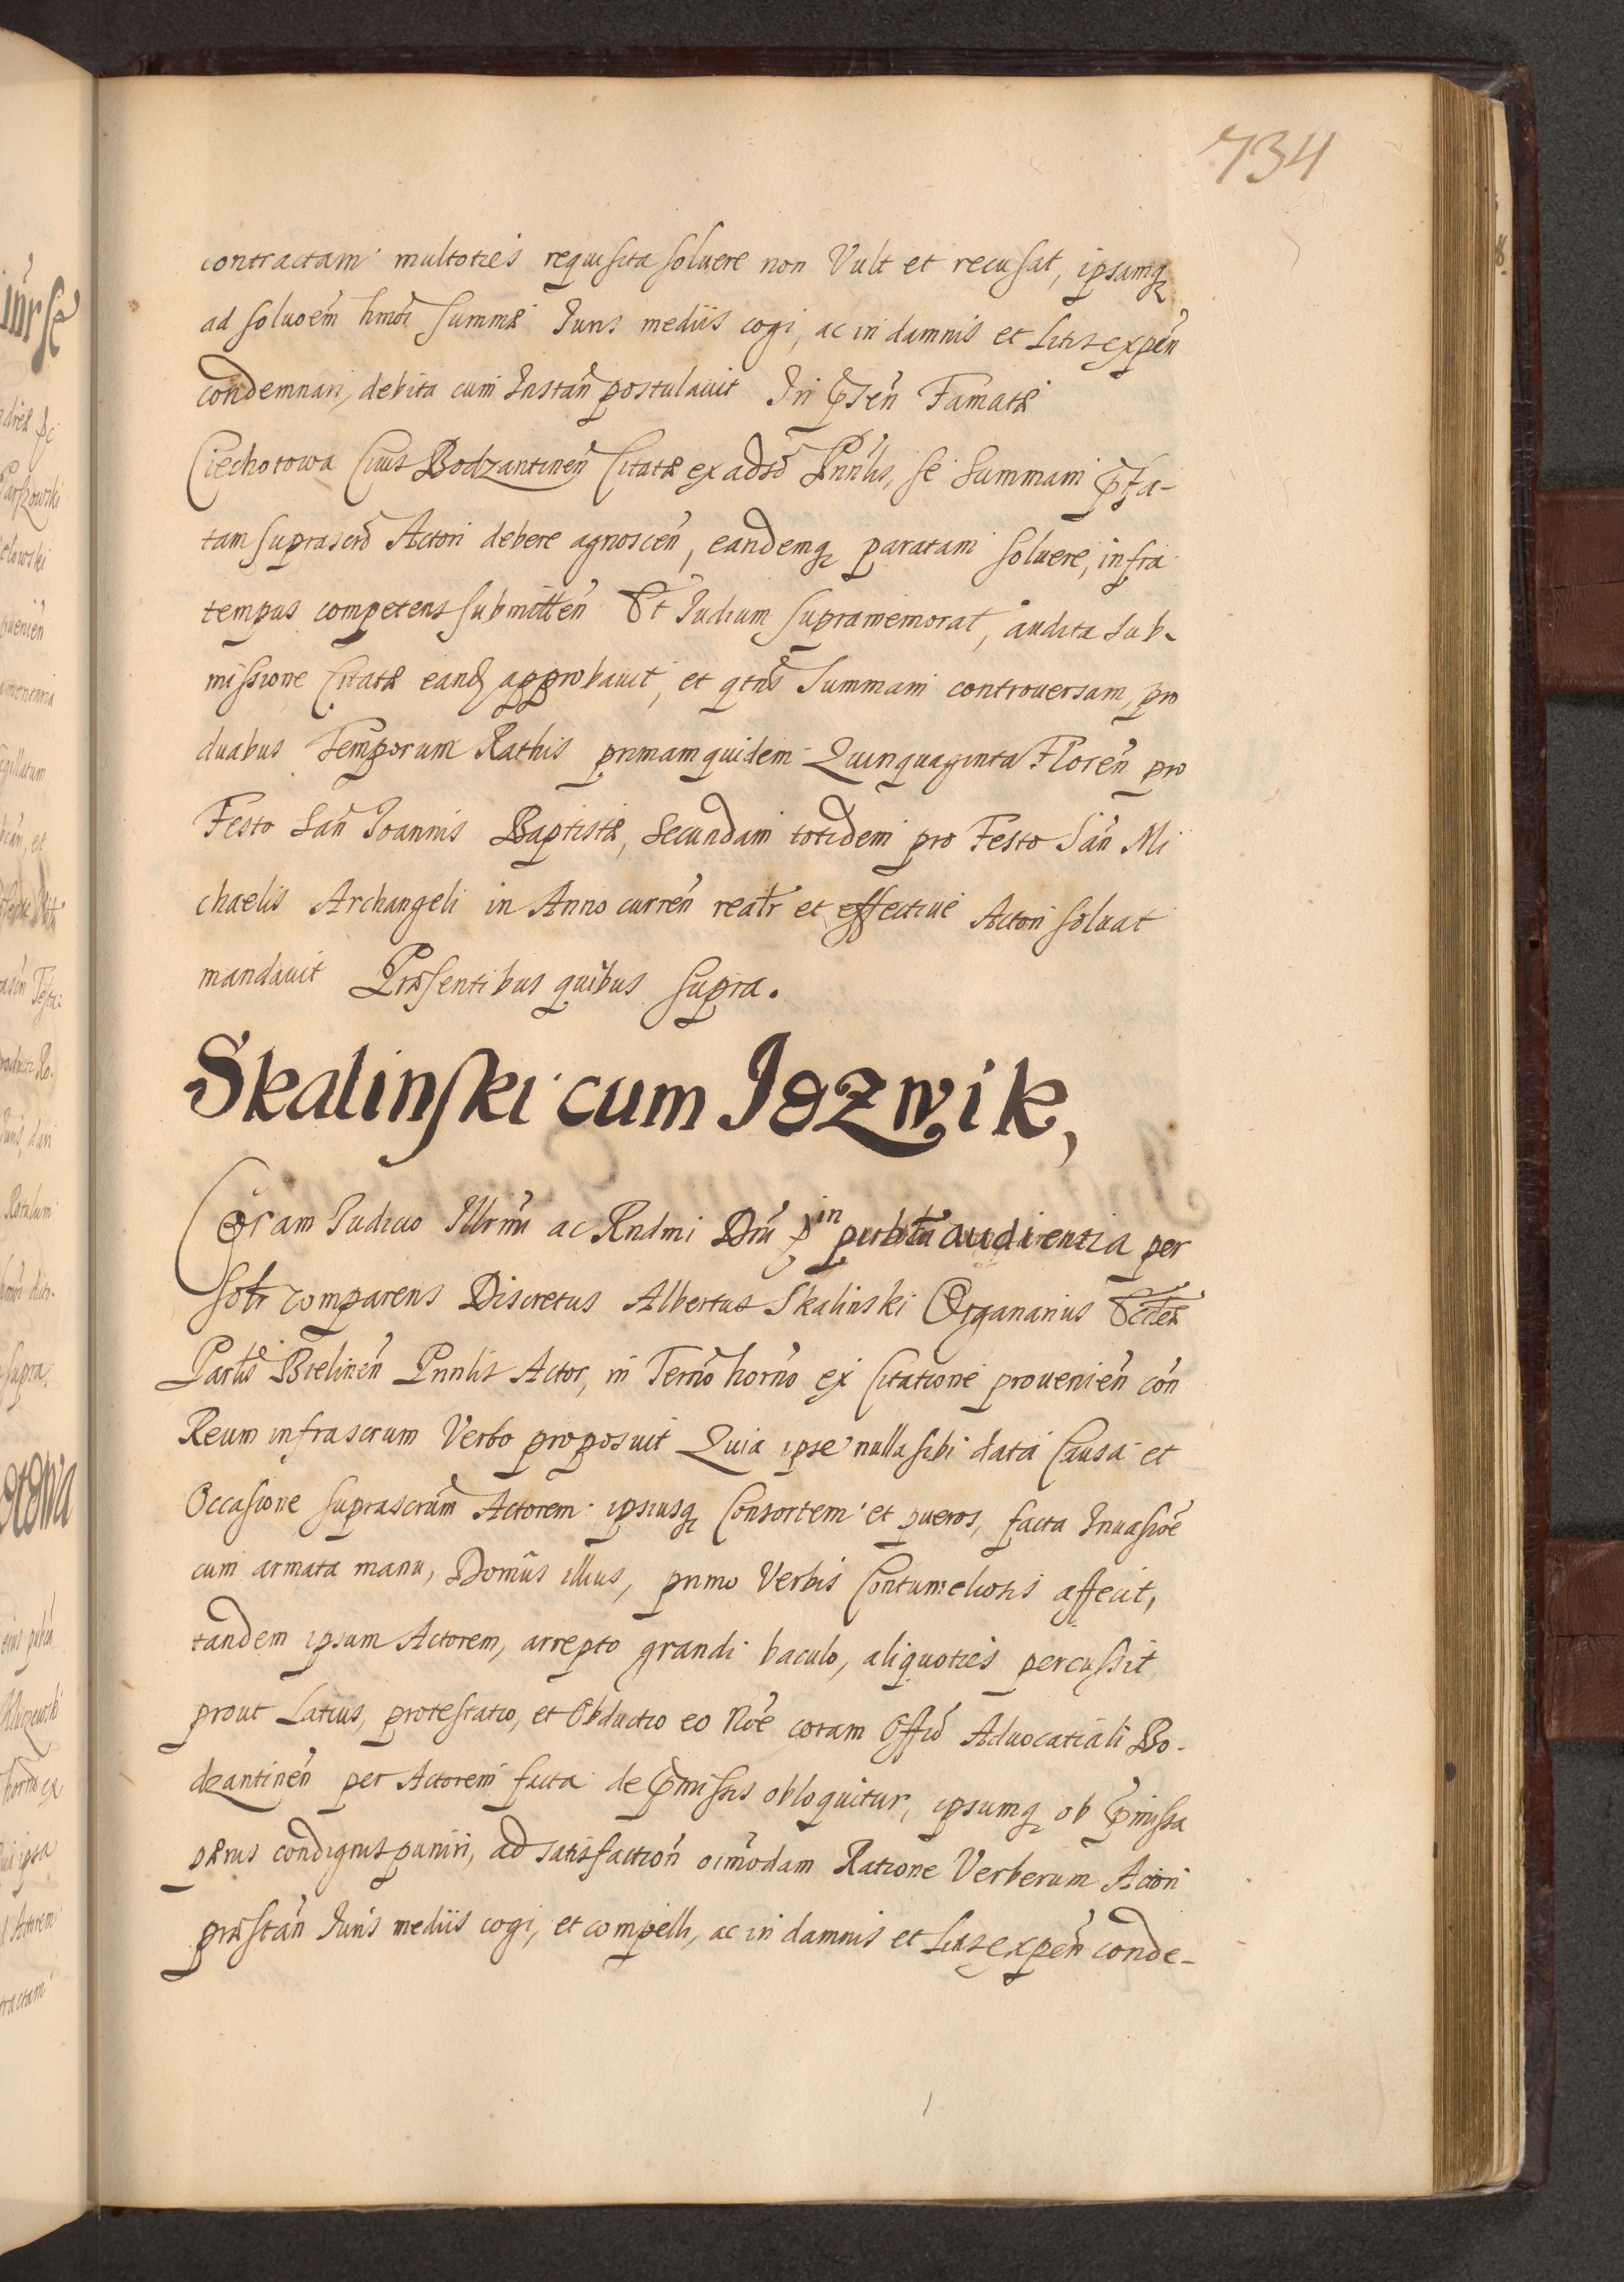 734
contractam multoties requisita soluere non Vult et recusat, ipsamq
ad soluoem hmoi summæ Iuris mediis cogi, ac in damnis et Litis expen
condemnari, debita cum Instan postulauit In Psen Famatæ
Ciechotowa Ciuis Bodzantinen Citatæ ex adso Pnnlis, se summam Pfa-
tam suprascro Actori debere agnoscen, eandemq paratam soluere, infra
tempus competens submitten Et Iudium supramemorat, audita sub-
missione Citatæ eand approbauit, et qtns Summam controuersam, pro
duabus Temporum Rathis primam quidem Quinquaginta Floren pro
Festo San Ioannis Baptistæ, Secundam totidem pro Festo San Mi
chaelis Archangeli in Anno curren realr et effectiue Actori soluat
mandauit Præsentibus quibus supra.
Skalinski cum Iozwik,
Coram Iudicio Illrmi ac Rndmi Dni P in publica audientia per
solr comparens Discretus Albertus Skalinski Organarius Eccles
Parlis Bielinen Pnnlis Actor, in Termo horno ex Citatione prouenien con
Reum infrascrum Verbo proposuit Quia ipse nulla sibi data Causa et
Occasione suprascrum Actorem ipsiusq Consortem et pueros, facta Inuasioe
cum armata manu, Domus illius, primo Verbis Contumeliosis affecit,
tandem ipsum Actorem, arrepto grandi baculo, aliquoties percussit
prout Latius, protestatio, et Obductio eo Noe coram Offio Aduocatiali Bo-
dzantinen per Actorem facta de Pmissis obloquitur, ipsumq ob Pmissa
pænis condignis puniri, ad satisfaction oimodam Ratione Verberum Actori
præstan Iuris mediis cogi, et compelli, ac in damnis et Litis expen conde-